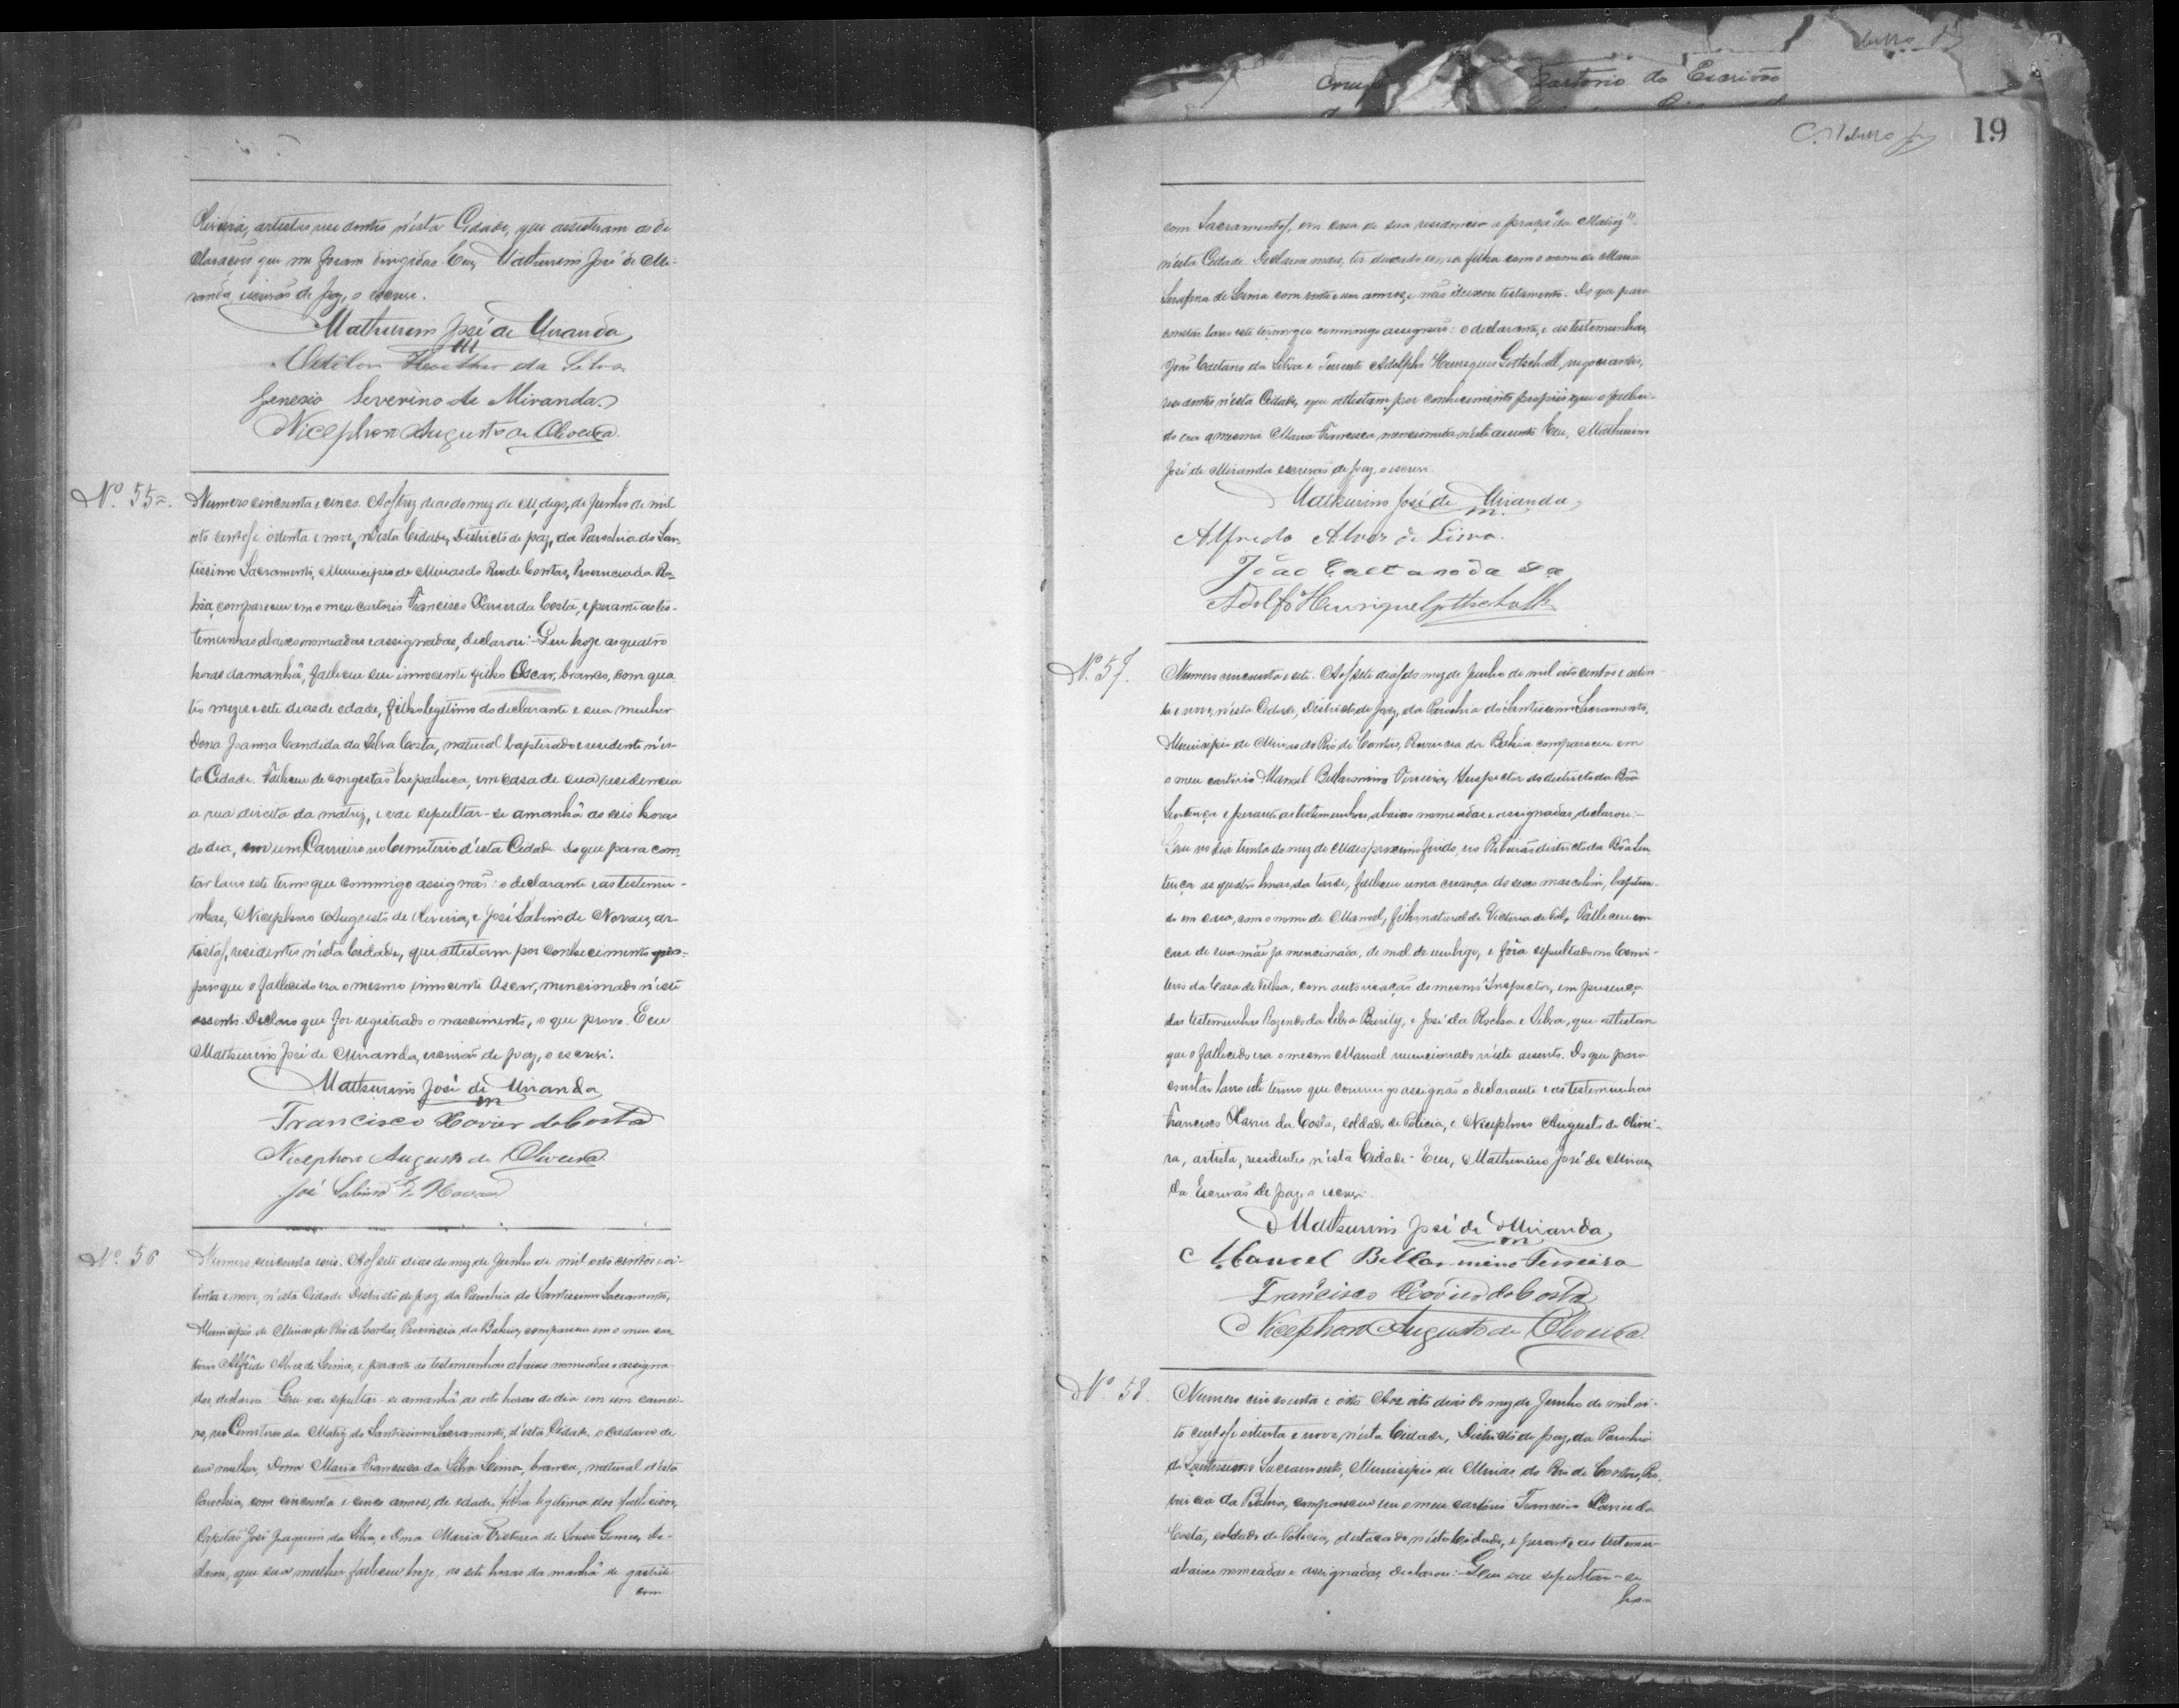 Cartorio do Escrivão
19
Oliveira, artistas, residentes n'esta Cidade, que assistiram as de
clarações que me foram dirigidas. Eu, Mathurino José de Mi-
randa, escrivão de paz, o escrevi.
Mathurino José de Miranda
da Silva
Genesio Severino de Miranda
Nicephoro Augusto de Oliveira
Nº 55
Numero cincoenta e cinco. Aos seis dias do mez de M, digo, de Junho de mil
oito centos e oitenta e nove, n'esta Cidade, Districto de paz, da Parochia do San-
tissimo Sacramento, Municipio de Minas do Rio de Contas, Provincia da Ba-
hia, compareceu em o meu cartorio Francisco Xavier da Costa, e perante as tes-
temunhas abaixo nomeadas e assignadas, declarou: Que hoje as quatro
horas da manhã, falleceu seu innocente filho Oscar, branco, com qua-
tro mezes e sete dias de edade, filho legitimo do declarante e sua mulher
Dona Joanna Candida da Silva Costa, natural baptisado e residente n'es-
ta Cidade. Falleceu de congestão hepathica, em casa de sua residencia
a rua direita da matriz, e vae sepultar-se amanhã as seis horas
do dia, em um Carneiro no Cemiterio d'esta Cidade. Do que para cons-
tar lavro este termo que commigo assignão: o declarante e as testemu-
nhas, Nicephoro Augusto de Oliveira, e José Sabino de Novaes, ar-
tistas, residentes n'esta Cidade, que attestam por conhecimento pro-
prio que o fallecido era o mesmo innocente Oscar, mencionado n'este
assento. Declaro que foi registrado o nascimento, o que provo. Eu
Mathurino José de Miranda, escrivão de paz, o escrevi.
Mathurino José de Miranda
Francisco Xavier da Costa
Nicephoro Augusto de Oliveira
José Sabino de Novaes
Nº 56
Numero cincoenta e seis. Aos sete dias do mez de Junho de mil oito centos e oi-
tenta e nove, n'esta Cidade Districto de paz da Parochia do Santissimo Sacramento,
Municipio de Minas do Rio de Contas, Provincia da Bahia, compareceu em o meu car-
torio Alfredo Alves de Lima, e perante as testemunhas abaixo nomeadas e assigna-
das declarou: Que vae sepultar-se amanhã as oito horas do dia em um carnei-
ro, no Cemiterio da Matriz do Santissimo Sacramento, d'esta Cidade, o cadaver de
sua mulher, Dona Maria Francisca da Silva Lima, branca, natural d'esta
Parochia, com cincoenta e cinco annos, de edade, filha legitima dos fallecidos,
Capitão José Joaquim da Silva, e Dona Maria Victoria de Souza Gomes, de-
clarou, que sua mulher falleceu hoje, as sete horas da manhã de gastrite
com
com Sacramentos, em casa de sua residencia a praça "da Matriz"
n'esta Cidade. Declarou mais, ter deixado uma filha com o nome de Maria
Serafina de Lima com vinte e um annos, e não deixou testamento. Do que para
constar lavro este termo que commigo assignão: o declarante, e as testemunhas,
João Caetano da Silva e Tenente Adolpho Henriques Gottschall, negociantes,
residentes n'esta Cidade, e que attestam por conhecimento proprio que o falleci-
do era a mesma Maria Francisca, mencionada n'este assento. Eu, Mathurino
José de Miranda escrivão de paz, o escrevi.
Mathurino José de Miranda
Alfredo Alves de Lima.
João Caetano da
Adolfo Henrique Gottschalk
Nº 57.
Numero cincoenta e sete. Aos sete dias do mez de Junho de mil oito centos e oiten-
ta e nove, n'esta Cidade, Districto de paz, da Parochia do Santissimo Sacramento,
Municipio de Minas do Rio de Contas, Provincia da Bahia compareceu em
o meu cartorio Manoel Bellarmino Ferreira, Inspector do districto da Bôa
Sentença e perante as testemunhas, abaixo nomeadas e assignadas, declarou:
Que no dia trinta do mez de Maio proximo findo, no Riberão districto da Bôa Sen
tença as quatro horas da tarde, falleceu uma creança do sexo masculino, baptisa-
do em casa, com o nome de Manoel, filho natural de Victoria de Tal, Falleceu em
casa de sua mãe ja mencionada, de mal de umbigo, e fôra sepultado no Cemi-
terio da Casa de Telha, com autorisação do mesmo Inspector, em presença
das testemunhas Rozendo da Silva Burity, e José da Rocha e Silva, que attestam
que o fallecido era o mesmo Manoel mencionado n'este assento. Do que para
constar lavro este termo que commigo assignão o declarante e as testemunhas
Francisco Xavier da Costa, soldado de Policia, e Nicephoro Augusto de Olivei-
ra, artista, residentes n'esta Cidade. Eu, Mathurino José de Miran
da Escrivão de paz, o escrevi.
Mathurino José de Miranda
Manoel Bellarmino Ferreira
Francisco Xavier da Costa
Nicephoro Augusto de Oliveira
Nº 58.
Numero cincoenta e oito. Aos oito dias do mez de Junho de mil oi-
to centos e oitenta e nove, n'esta Cidade, Districto de paz, da Parochia
do Santissimo Sacramento, Municipio de Minas do Rio de Contas, Pro-
vincia da Bahia, compareceu em o meu cartorio Francisco Xavier da
Costa, soldado de Policia, destacado n'esta Cidade, e perante as testemu-
abaixo nomeadas e assignadas, declarou: Que vae sepultar-se